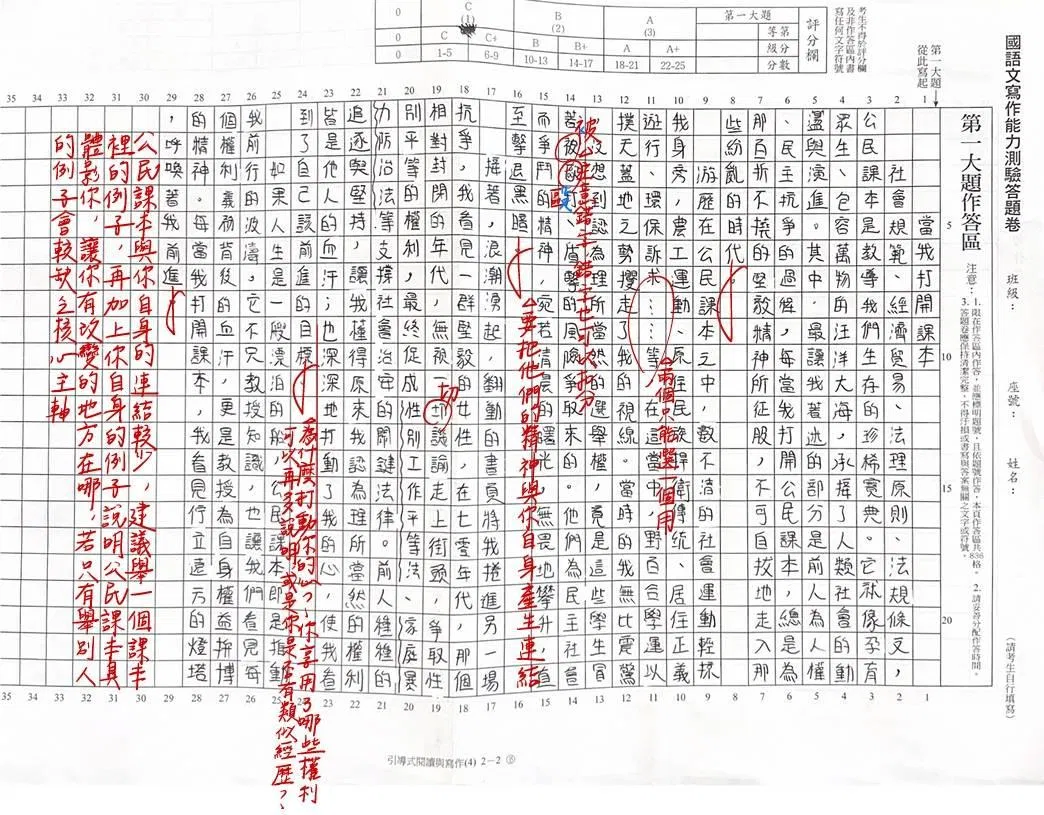 國語文寫作能力測驗答題卷
班級：
座號：
姓名：
（請考生自行填寫）
第一大題作答區
注意：1.限在作答區內作答，並應標明題號，且依題號作答，本頁作答區共836格。 2.請妥善分配作答時間。
3.答題卷應保持清潔完整，不得汙損或書寫與答案無關之文字或符號。
第一大題
從此寫起
考生不得於評分欄
及非作答區內書
寫任何文字符號
評分欄
第一大題
等第
級分
分數
A
(3)
A+
22-25
A
18-21
B
(2)
B+
14-17
B
10-13
C
(1)
C+
6-9
C
1-5
0
0
0
當我打開課本
社會規範、經濟貿易、法理原則、法規條文，
公民課本是教導我們生存的珍稀寶典。它就像孕育，
眾生、包容萬物的汪洋大海，承接了人類社會的動
盪與演進。其中，最讓我著迷的部分是前人為人權
、民主抗爭的過程，每當我打開公民課本，總是為
那百折不撓的堅毅精神所征服，不可自拔地走入那
些紛亂的時代。
游歷在公民課本之中，數不清的社會運動輕抹
我身旁，農工運動、原住民族捍衛傳統、居住正義
遊行、環保訴求……等等在當中，野百合學運以
撲天蓋地之勢攫走了我的視線。當時的我無比震驚
沒想到認為理所當然的選舉權，竟是這些學生冒
著被毆、盾擊的風險爭取來的。他們為民主社會
而爭鬥的精神，宛若清晨的曙光，無畏地攀升，直
至擊退黑暗。
接著，浪潮湧起，翻動的書頁將我捲進另一場
抗爭，我看見一群堅毅的女性，在七零年代，那個
相對封閉的年代，無視切譏諭，走上街頭，爭取性
別平等的權利，最終促成性別工作平等法、家庭暴
力防治法等支撐社會治安的關鍵法律。前人種種的
追逐與堅持，讓我 理所當然的權利
皆是他人的血汗，也深深地打動了我的心，使我看
到了自己前進的目標。
如果人生是一艘漂泊的船，公民課本即是推動
我前行的波濤，它不只教授知識，也讓我們看見每
個權利義務背後的血汗，更是教授為自身權益拚搏
的精神。每當我打開課本，我看見佇立遠方的燈塔
，呼喚著我前進。
兩個只能選一個用
被
注意錯字 錯字也可以扣分
毆
要把他們的精神與你自身產生連結
切
為什麼打動你的心？你享用了哪些權利
可以再多說明或是你是否有類似經歷？
公民課本與你自身的連結較少，建議舉一個課本
裡的例子，再加上你自身的例子說明公民課本具
體影你，讓你有改變的地方在哪，若只有舉別人
的例子會較缺乏核心主軸
引導式閱讀與寫作(4) 2－2